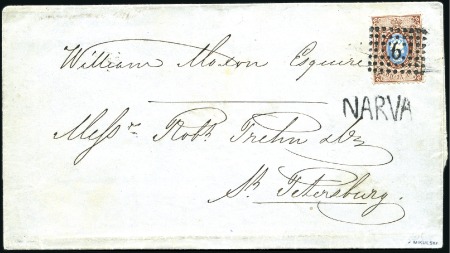 William Moxon Esquire
6
NARVA
Messrs Robt
St Petersburg.